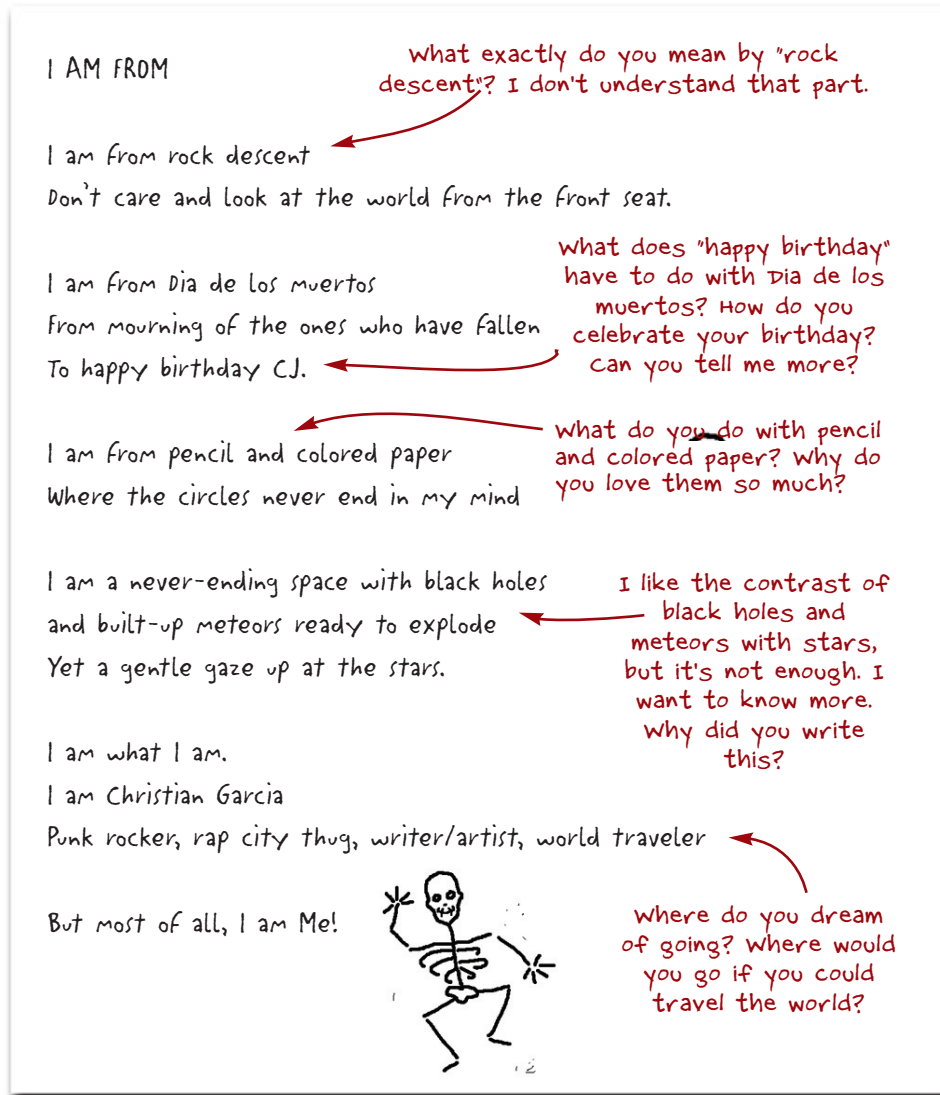 I AM FROM
What exactly do you mean by "rock
descent"? I don't understand that part.
I am from rock descent
Don't care and look at the world from the front seat.
I am from Dia de los muertos
From mourning of the ones who have fallen
To happy birthday CJ.
What does "happy birthday"
have to do with Dia de los
muertos? How do you
celebrate your birthday?
Can you tell me more?
I am from pencil and colored paper
Where the circles never end in my mind
What do you do with pencil
and colored paper? Why do
you love them so much?
I am a never-ending space with black holes
and built-up meteors ready to explode
Yet a gentle gaze up at the stars.
I like the contrast of
black holes and
meteors with stars,
but it's not enough. I
want to know more.
Why did you write
this?
I am what I am.
I am Christian Garcia
Punk rocker, rap city thug, writer/artist, world traveler
But most of all, I am Me!
Where do you dream
of going? Where would
you go if you could
travel the world?